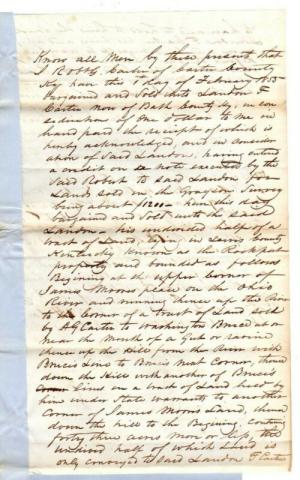 Know all Men by these present that
I Robt G. Carter of Carter County
Ky have this 1 day of February 1853
bargained and Sold unto Landon F
Carter now of Bath County Ky, in con
sideration of One Dollar to me in
hand paid the receipt of which is
hereby acknowledged, and in consider
ation of Said Landon, having entered
a credit on a note executed by the
Said Robert to Said Landon for
Lands sold on the Grayson Survey
being about $1200 – have this day
bargained and Sold unto the said
Landon – his undivided half of a
tract of Land, lying in Lewis County
Kentucky known as the
property and bounded as follows
Beginning at the upper corner of
James Moores place on the Ohio
River and running thence up the River
to the Corner of a tract of Land sold
by A G Carter to Washington Bruce at or
near the Mouth of a Gut or ravine
thence up the hill from the River with
Bruces Lines to Bruces next Corner, thence
down the hill with another of Bruces
Lines on a tract of Land held by
him under State warrants to another
Corner of James Moores Land, thence
down the hill to the Begining, containg
forty three acres more or less, the
undivid half of which Land is
only conveyed to Said Landon F Carter